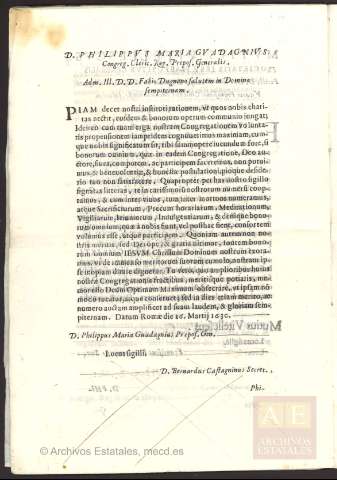 D. PHILIPPVS MARIA GVADAGNIVS:
Congreg. Cleric. Reg. Præpos. Generalis,
Adm. Ill. D. D. Fabio Dugnano salutem in Domino
sempiternam.
PIAM decet nostri instituti rationem, vt quos nobis chari-
tas nectit, eosdem & bonorum operum communio iungat;
Ideireò cum tuam erga nostram Congregationem volunta-
tis propensionem iampridem cognitam
nobis significatum sit, tibi summopere iucundum fore, si
bonorum omnium, quæ in eadem Congregatione, Deo au-
ctore, fiunt, compotem, ac participem faceremus, non potui-
mus & beneuolentiæ, & honestæ postulationi, pioque deside-
rio tuo non satisfacere. Quapropter per has nostro sigillo
signatas litteras, te in carissimorum nostrorum numerum coopta-
mus, & cum inter viuos, tum inter mortuos numeramus,
atque Sacrificiorum, Precum horariarum, Meditationum,
Vigiliarum, Ieiuniorum, Indulgentiarum, & denique bono-
rum omnium, quæ à nobis fiunt, vel posthac fient, consortem
volumus esse, atque participem. Quoniam autem non
nostris meritis, sed Dei ope, & gratia nitimur, eundem bono-
rum omnium IESVM Christum Dominum nostrum exora-
mus, vt de immenso meritorum suorum cumulo, nostram ip-
se inopiam ditare dignetur. Tu verò, quo amplioribus huius
nostræ Congregationis fructibus, meritisque potiaris, me-
mor esto Deum Optimum Maximum obsecrare, vt ipsum
modò tueatur, atque conseruet; sed in dies etiam merito, ac
numero auctam amplificet ad suam laudem, & gloriam sem-
piternam. Datum Romæ die 16. Martij 1630.
D. Philippus Maria Guadagnius Præpos. Gen.
Locus sigilli.
D. Bernardus Castagninus Secret.
Phi.
AE
ARCHIVOS
ESTATALES
© Archivos Estatales, mecd.es